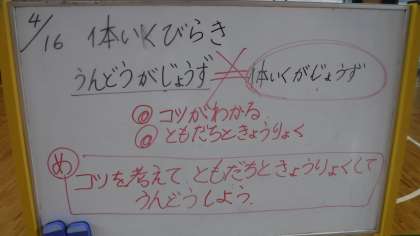 4/16 体いくびらき
うんどうがじょうず 体いくがじょうず
◎ コツがわかる
◎ ともだちときょうりょく
め コツを考えて ともだちときょうりょくして
うんどうしよう.